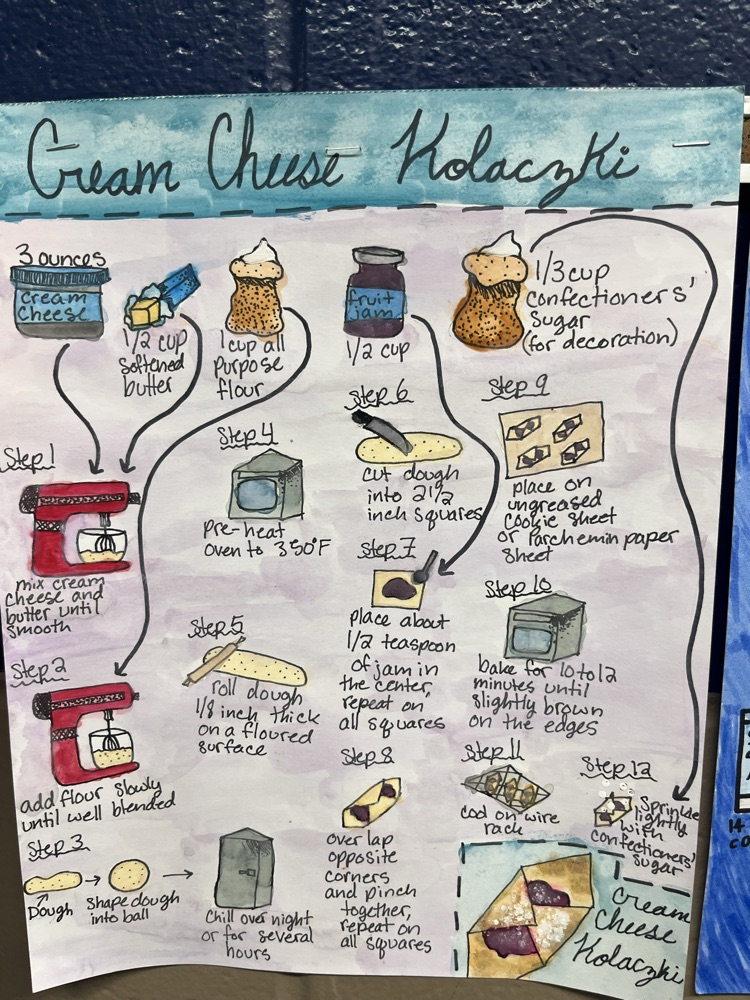 Cream Cheese Kolaczki
3 ounces
Cream
Cheese
1/2 cup
softened
butter
1 cup all
purpose
flour
fruit
jam
1/2 cup
1/3 cup
confectioners'
sugar
(for decoration)
Step 1
mix cream
cheese and
butter until
smooth
Step 2
add flour slowly
until well blended
Step 3
Dough
Shape dough
into ball
Chill over night
or for several
hours
Step 4
Pre-heat
oven to 350°F
Step 5
roll dough
1/8 inch thick
on a floured
surface
Step 6
cut dough
into 2 1/2
inch squares
Step 7
place about
1/2 teaspoon
of jam in
the center,
repeat on
all squares
Step 8
over lap
opposite
corners
and pinch
together,
repeat on
all squares
Step 9
place on
ungreased
cookie sheet
or Parchemin paper
sheet
Step 10
bake for 10 to 12
minutes until
slightly brown
on the edges
Step 11
cool on wire
rack
Step 12
Sprinkle
lightly
with
confectioners'
sugar
Cream
Cheese
Kolaczki